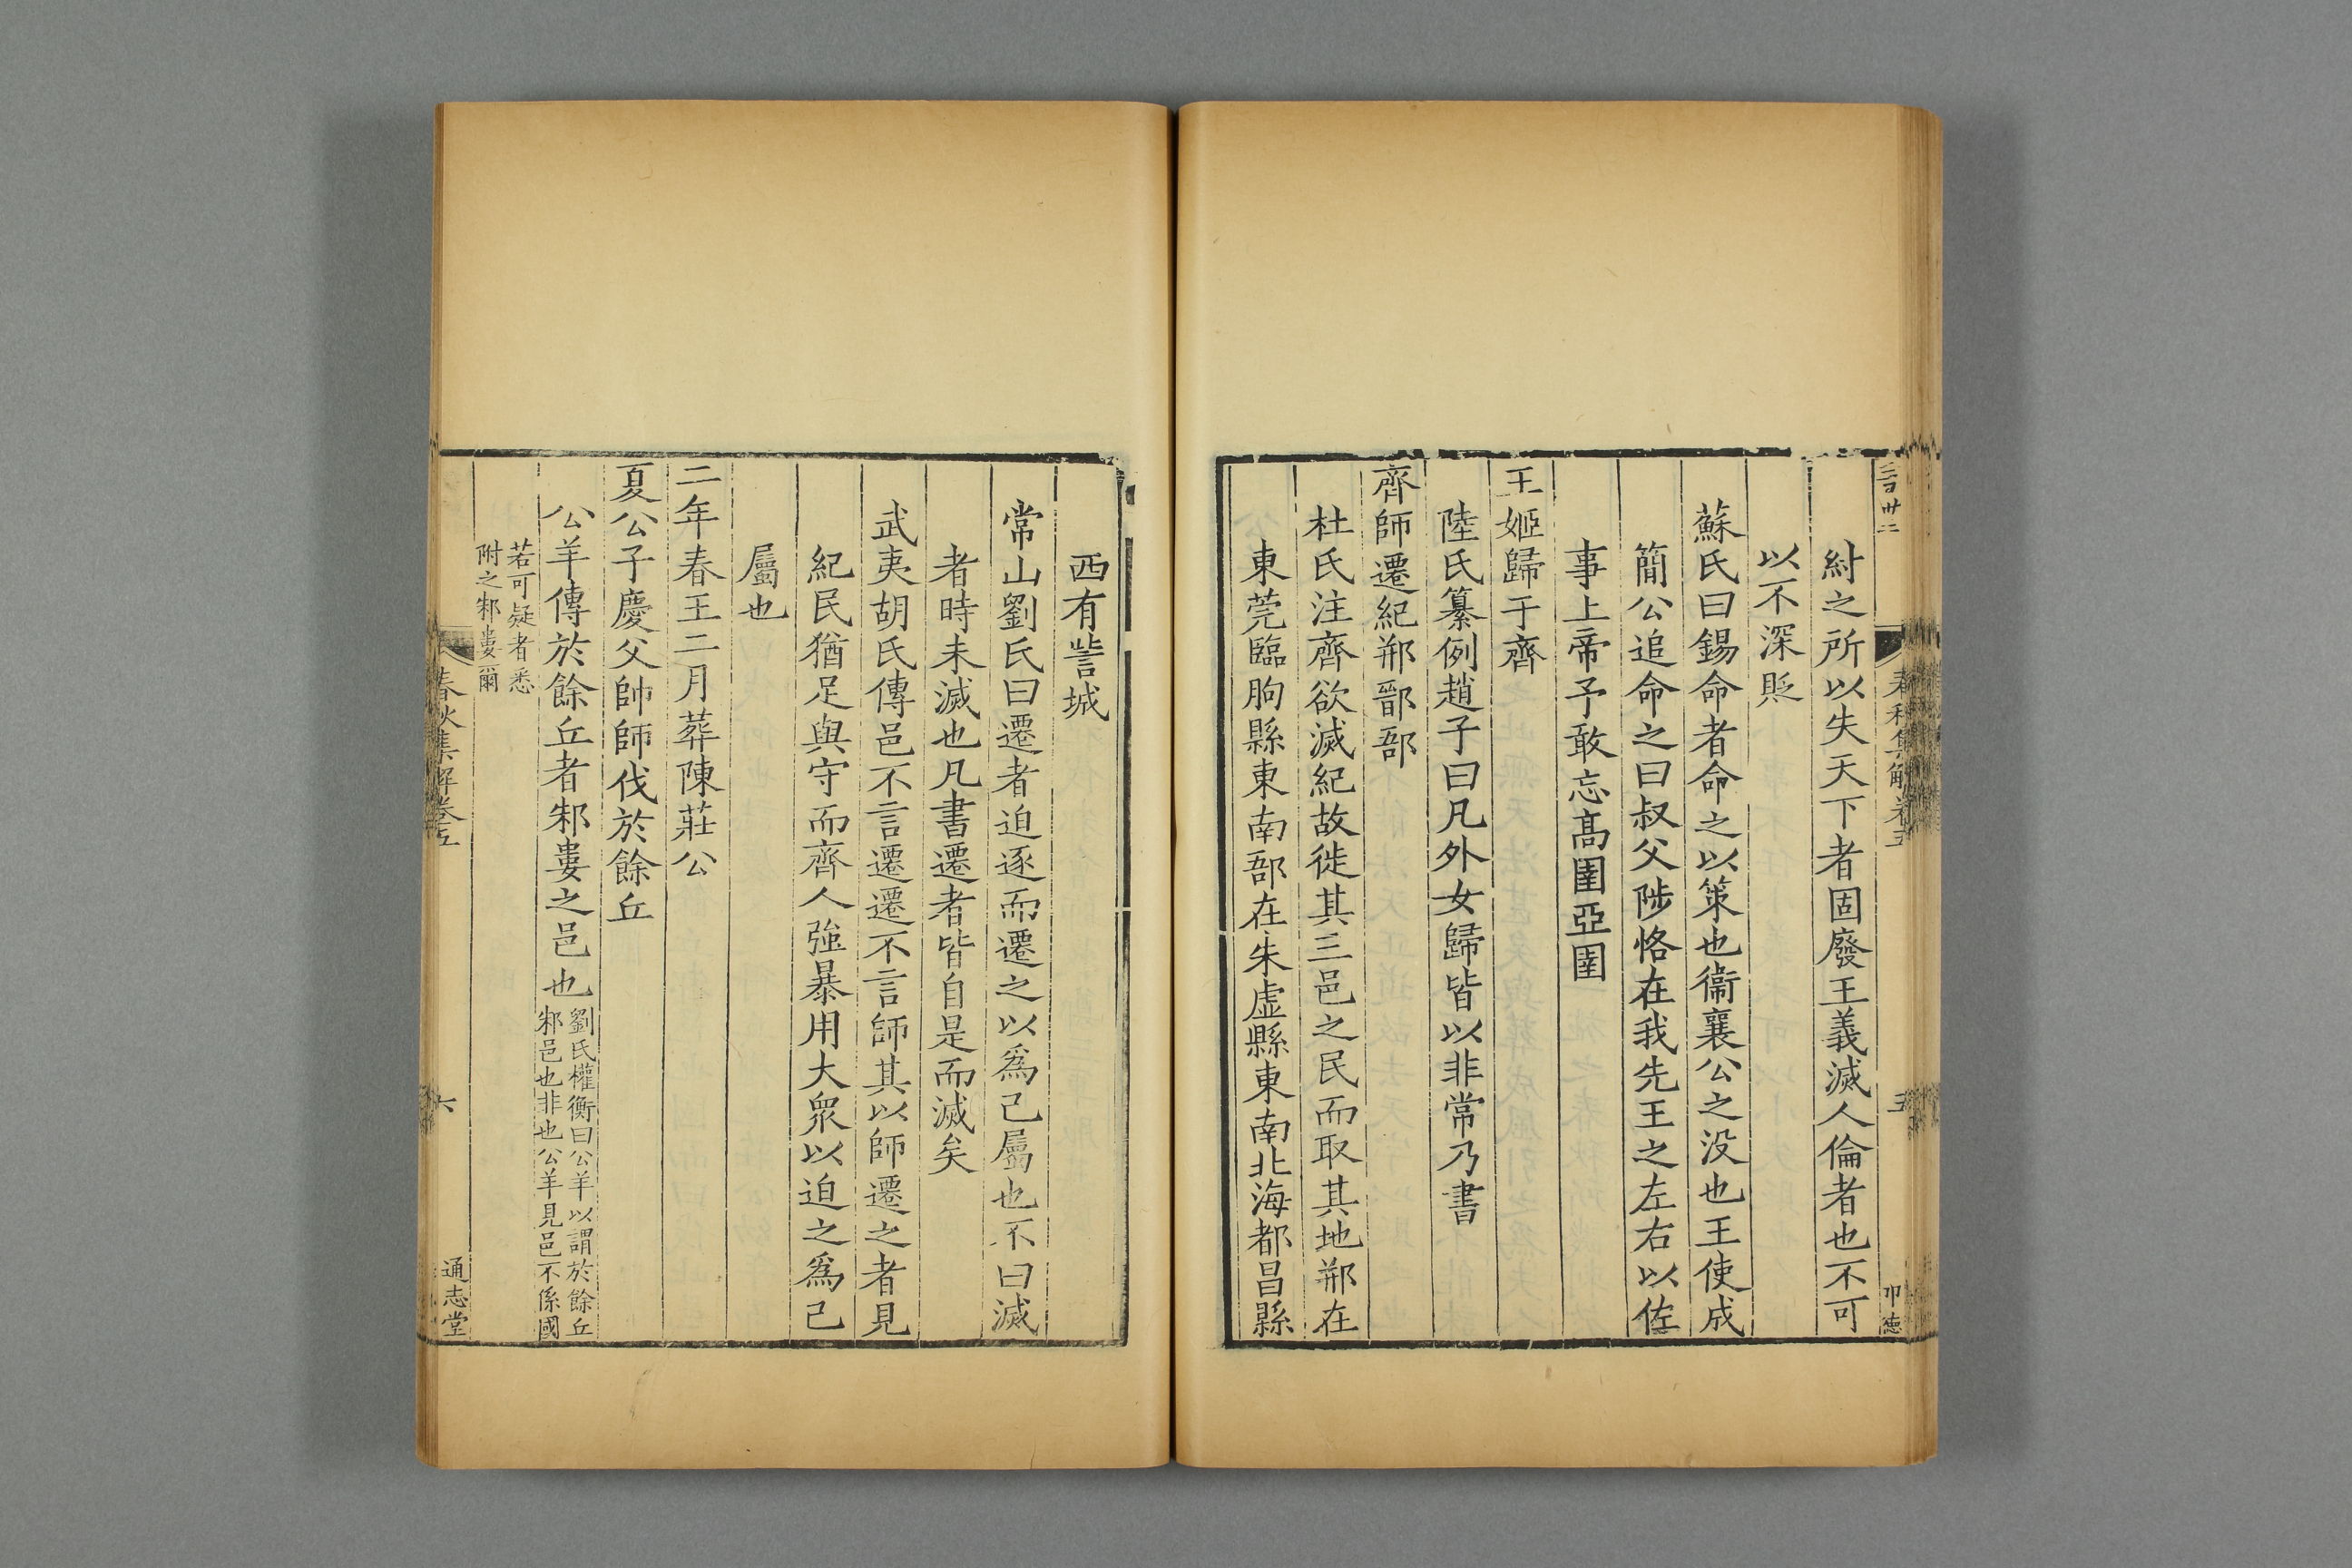 春秋集解卷五
五
紂之所以失天下者固廢王義滅人倫者也不可
以不深貶
蘇氏曰錫命者命之以策也衞襄公之没也王使成
簡公追命之曰叔父陟恪在我先王之左右以佐
事上帝予敢忘高圉亞圉
王姬歸于齊
陸氏纂例趙子曰凡外女歸皆以非常乃書
齊師遷紀郱鄑郚
杜氏注齊欲滅紀故徙其三邑之民而取其地郱在
東莞臨朐縣東南郚在朱虛縣東南北海都昌縣
西有訾城
常山劉氏曰遷者迫逐而遷之以爲己屬也不曰滅
者時未滅也凡書遷者皆自是而滅矣
武夷胡氏傳邑不言遷遷不言師其以師遷之者見
紀民猶足與守而齊人強暴用大衆以迫之爲己
屬也
二年春王二月葬陳莊公
夏公子慶父帥師伐於餘丘
公羊傳於餘丘者邾婁之邑也
劉氏權衡曰公羊以謂於餘丘
邾邑也非也公羊見邑不係國
若可疑者悉
附之邾婁爾
春秋集解卷五
六
通志堂